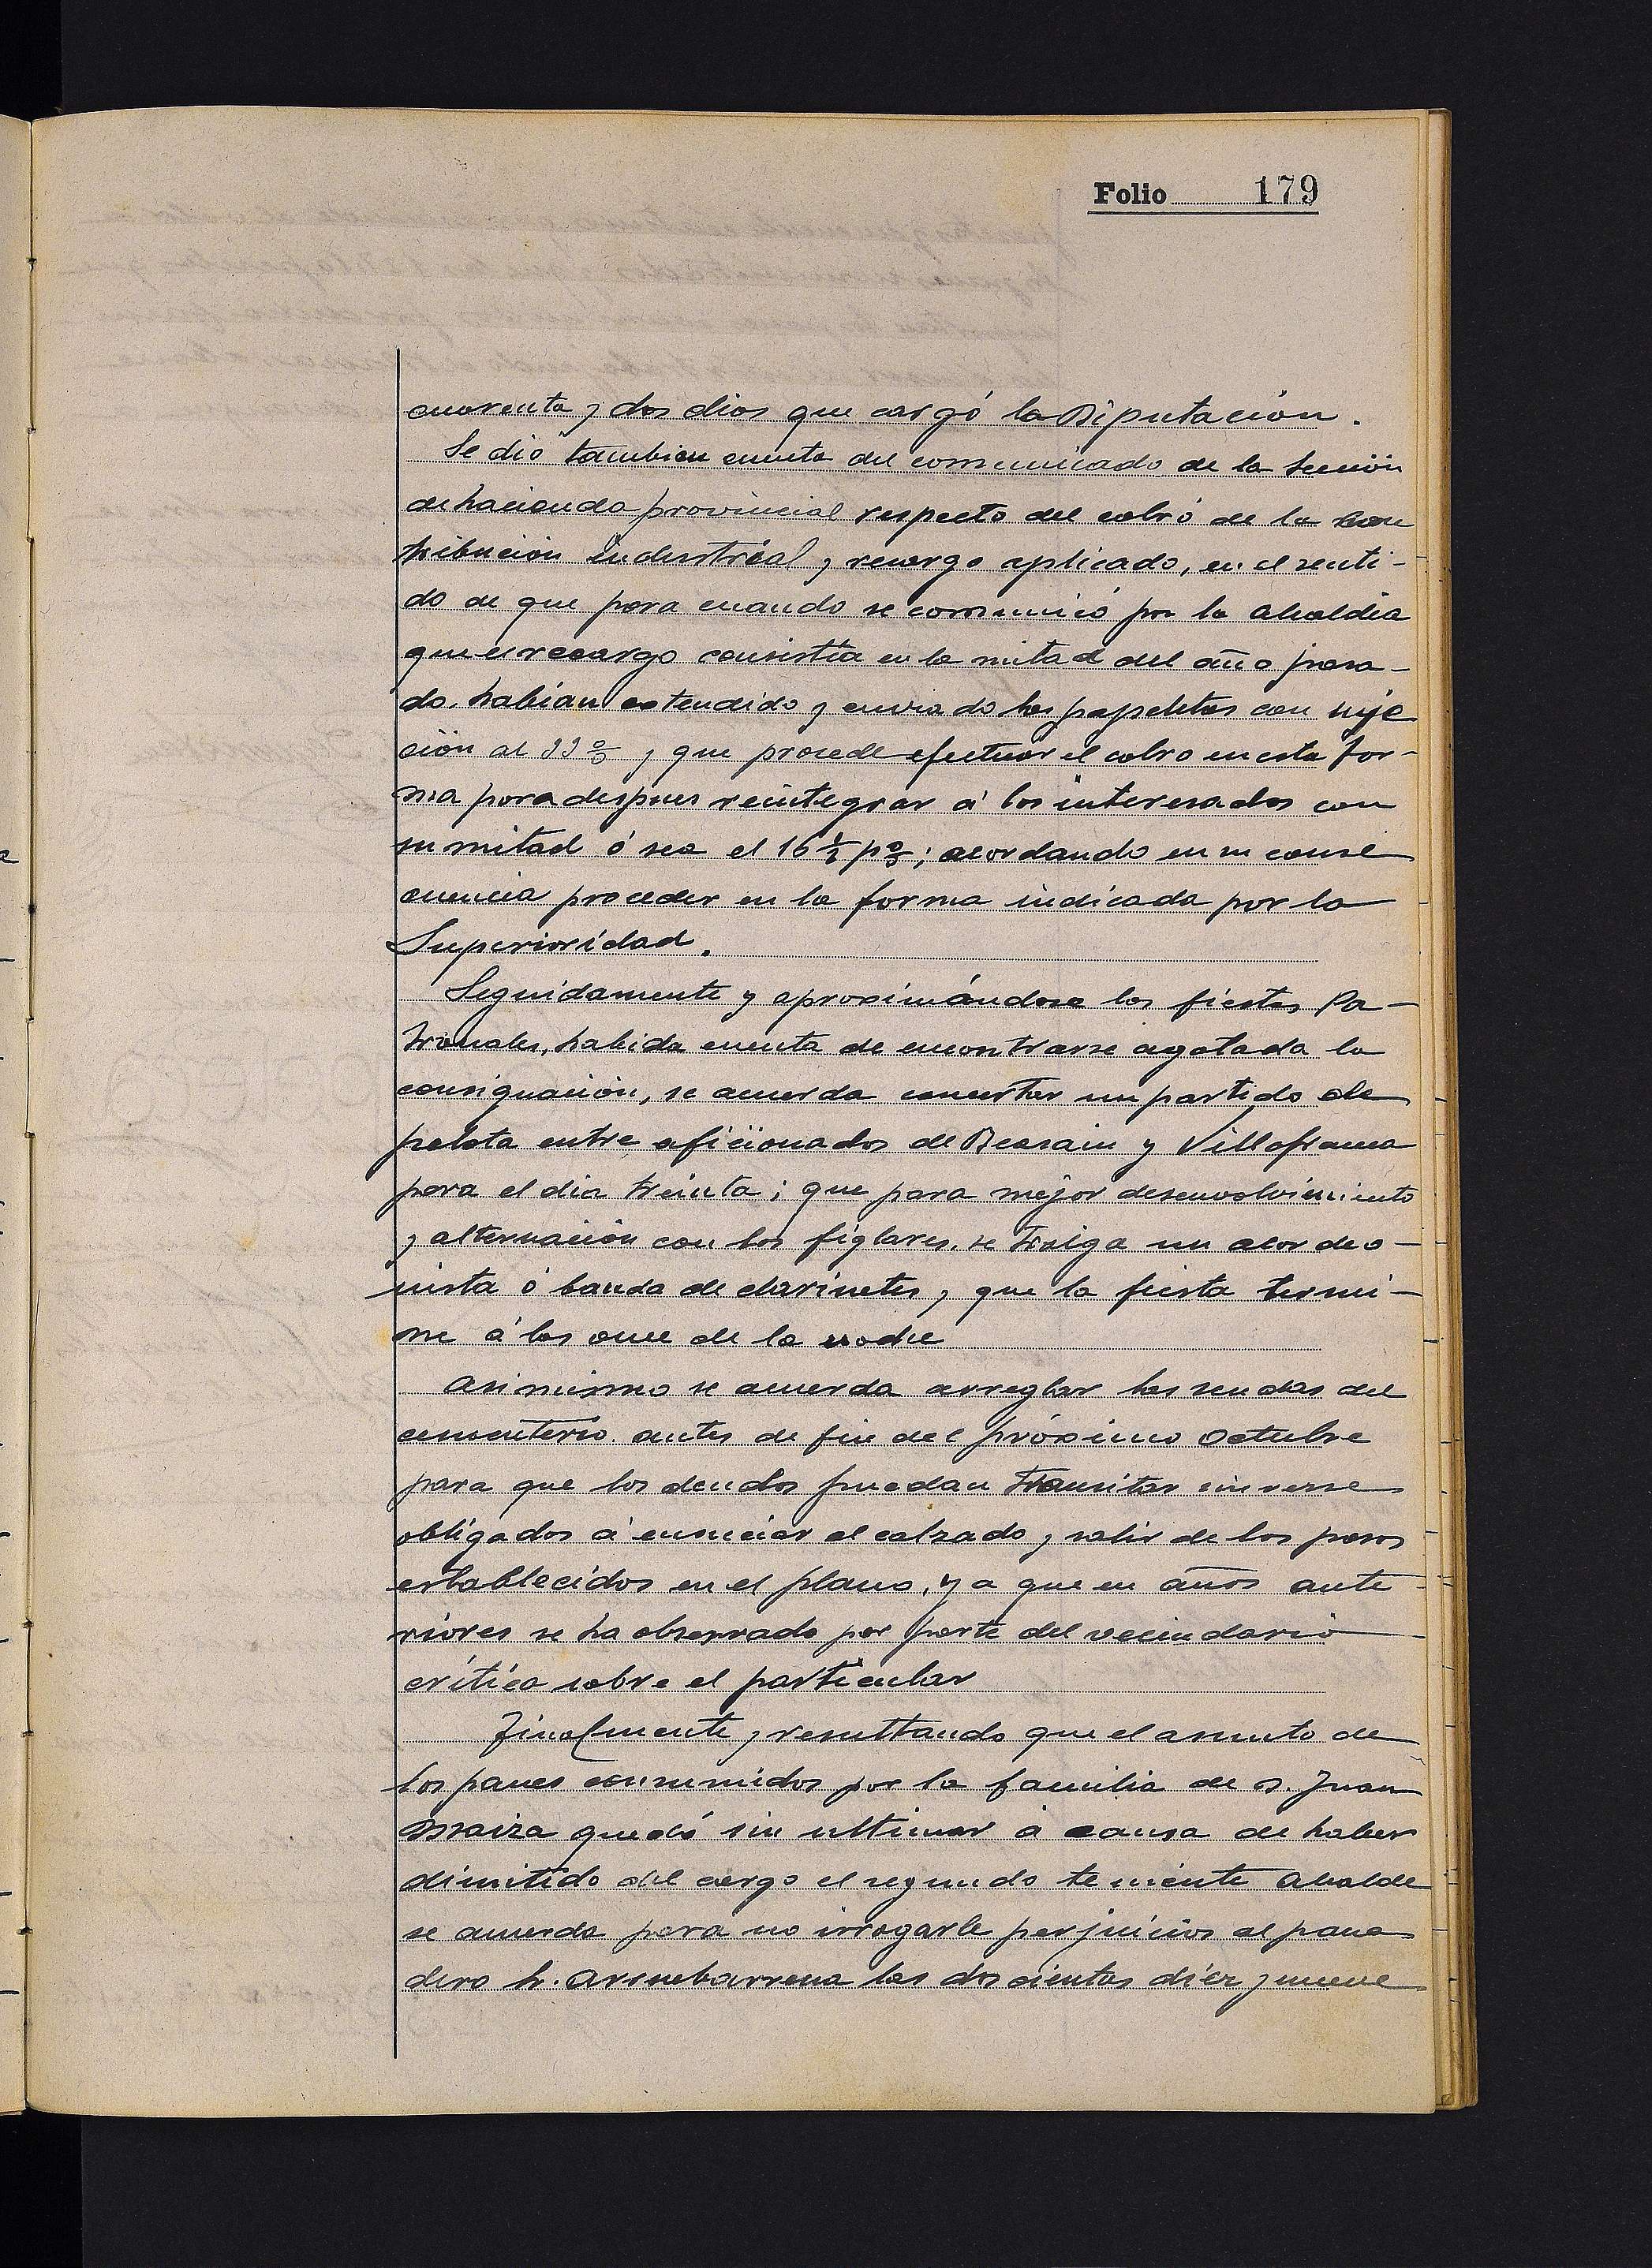 Folio 179
cuarenta y dos dias que cargó la Diputación.
Se dió tambien cuenta del comunicado de la Sección
de hacienda provincial respecto del cobro de la con
tribución industrial y recargo aplicado, en el senti-
do de que para cuando se comunicó por la alcaldia
que el recargo consistia en la mitad del año pasa-
do, habian extendido y enviado las papeletas con suje
ción al 33 % y que procede efectuar el cobro en esta for-
ma para despues reintegrar á los interesados con
su mitad ó sea el 16 ½ p%; acordando en su conse
cuencia proceder en la forma indicada por la
Superioridad.
Seguidamente y aproximándose las fiestas Pa-
tronales, habida cuenta de encontrarse agotada la
consignación, se acuerda concertar un partido de
pelota entre aficionados de Beasain y Villafranca
para el dia treinta; que para mejor desenvolvimiento
y alternación con los figlares, se traiga un acordeo-
nista ó banda de clarinetes y que la fiesta termi-
ne á las once de la noche
Asimismo se acuerda arreglar las sendas del
cementerio antes de fin del próximo Octubre
para que los deudos puedan transitar sin verse
obligados á ensuciar el calzado y salir de los pasos
establecidos en el plano, ya que en años ante-
riores se ha observado por parte del vecindario
crítica sobre el particular
Finalmente y resultando que el asunto de
los panes consumidos por la familia de D. Juan
Maiza quedó sin ultimar á causa de haber
dimitido del cargo el segundo teniente Alcalde
se acuerda para no irrogarle perjuicios al pana
dero Sr. Arsuebarrena las dos cientas diez y nueve